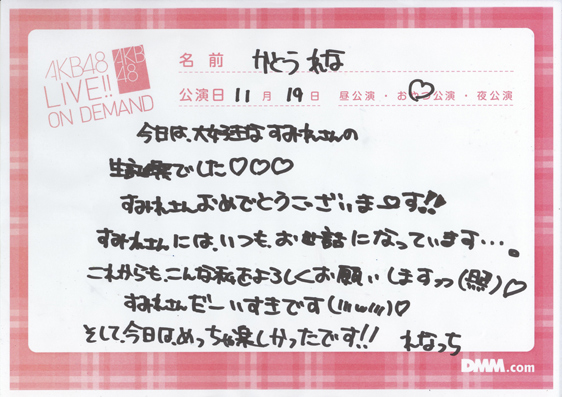 AKB48
LIVE!!
ON DEMAND
AKB
48
名前 かとうれな
公演日 11月19日 昼公演・おやつ公演・夜公演
今日は、大好きなすみれさんの
生誕祭でした♡♡♡
すみれさんおめでとうございまーす!!
すみれさんには、いつも、お世話になっています...。
これからも、こんな私をよろしくお願いしますッッ(照)♡
すみれさんだーいすきです(///ω///)♡
そして、今日は、めっちゃ楽しかったです!! れなっち
DMM.com